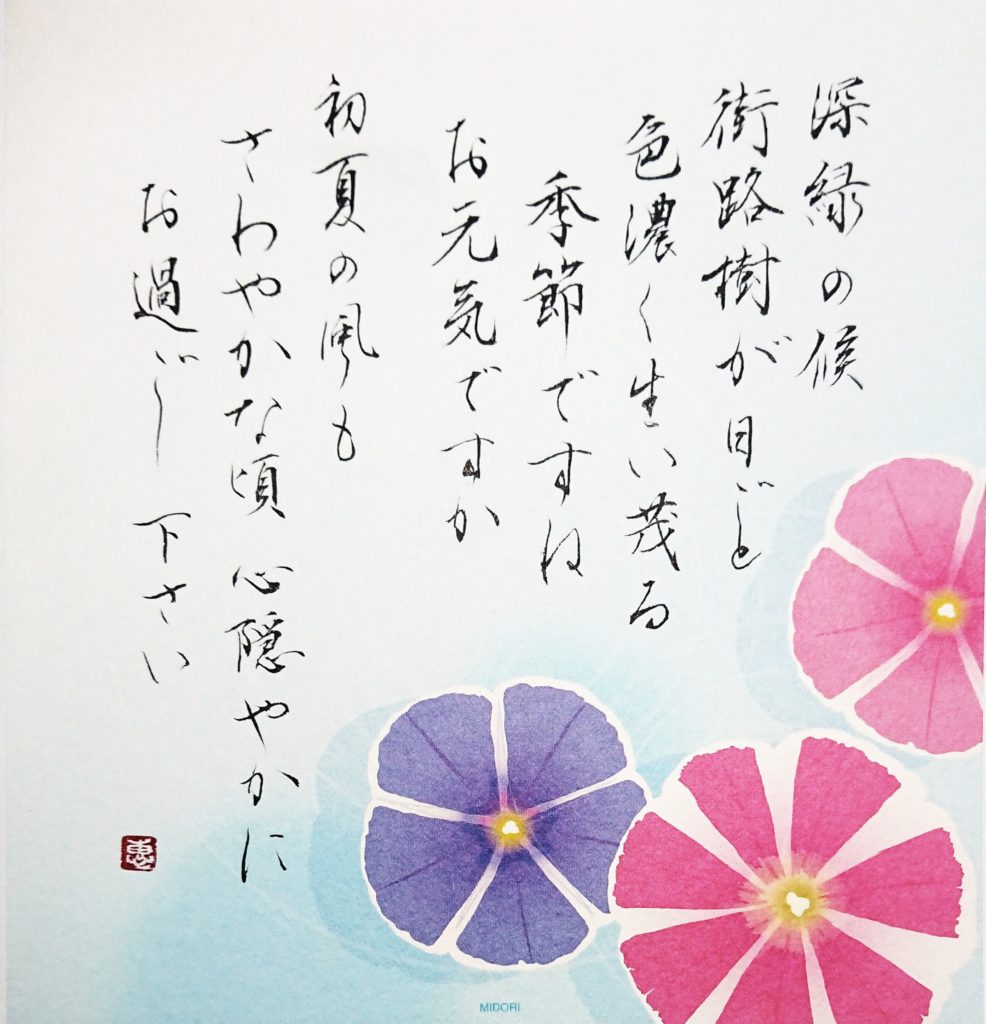 深緑の候
街路樹が日ごと
色濃く生い茂る
季節ですね
お元気ですか
初夏の風も
さわやかな頃 心隠やかに
お過ごし下さい
恵
MIDORI